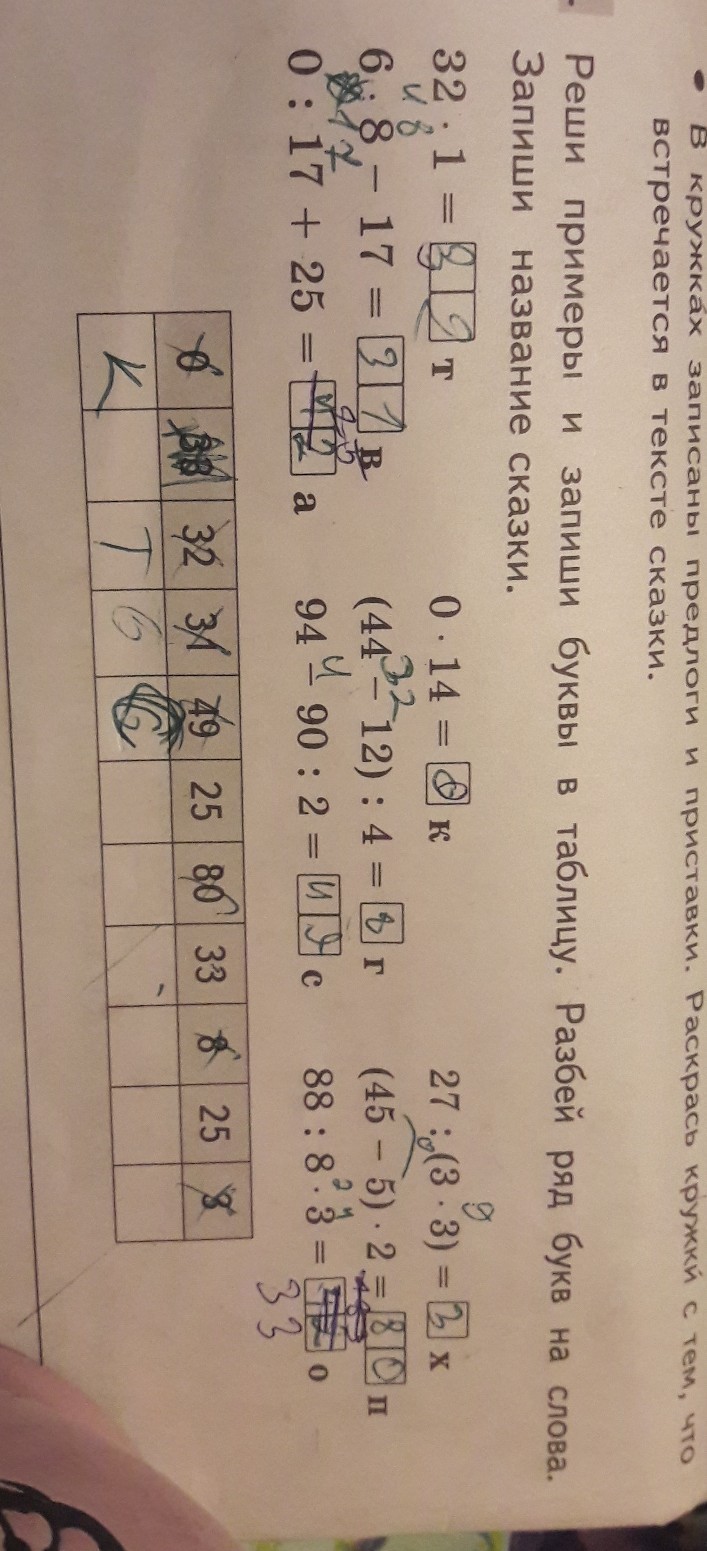 • В кружка́х записаны предлоги и приставки. Раскрась кружки́ с тем, что
встречается в тексте сказки.
Реши примеры и запиши буквы в таблицу. Разбей ряд букв на слова.
Запиши название сказки.
32 · 1 = т
0 · 14 = 0 к
27 : (3 · 3) = 3 х
9
6 · 8 − 17 = 31 в
(44 − 12) : 4 = 8 г
32
(45 − 5) · 2 = 80 п
0 : 17 + 25 = а
94 − 90 : 2 = с
88 : 8 · 3 = о
33
0 33 32 31 49 25 80 33 8 25 3
К Т